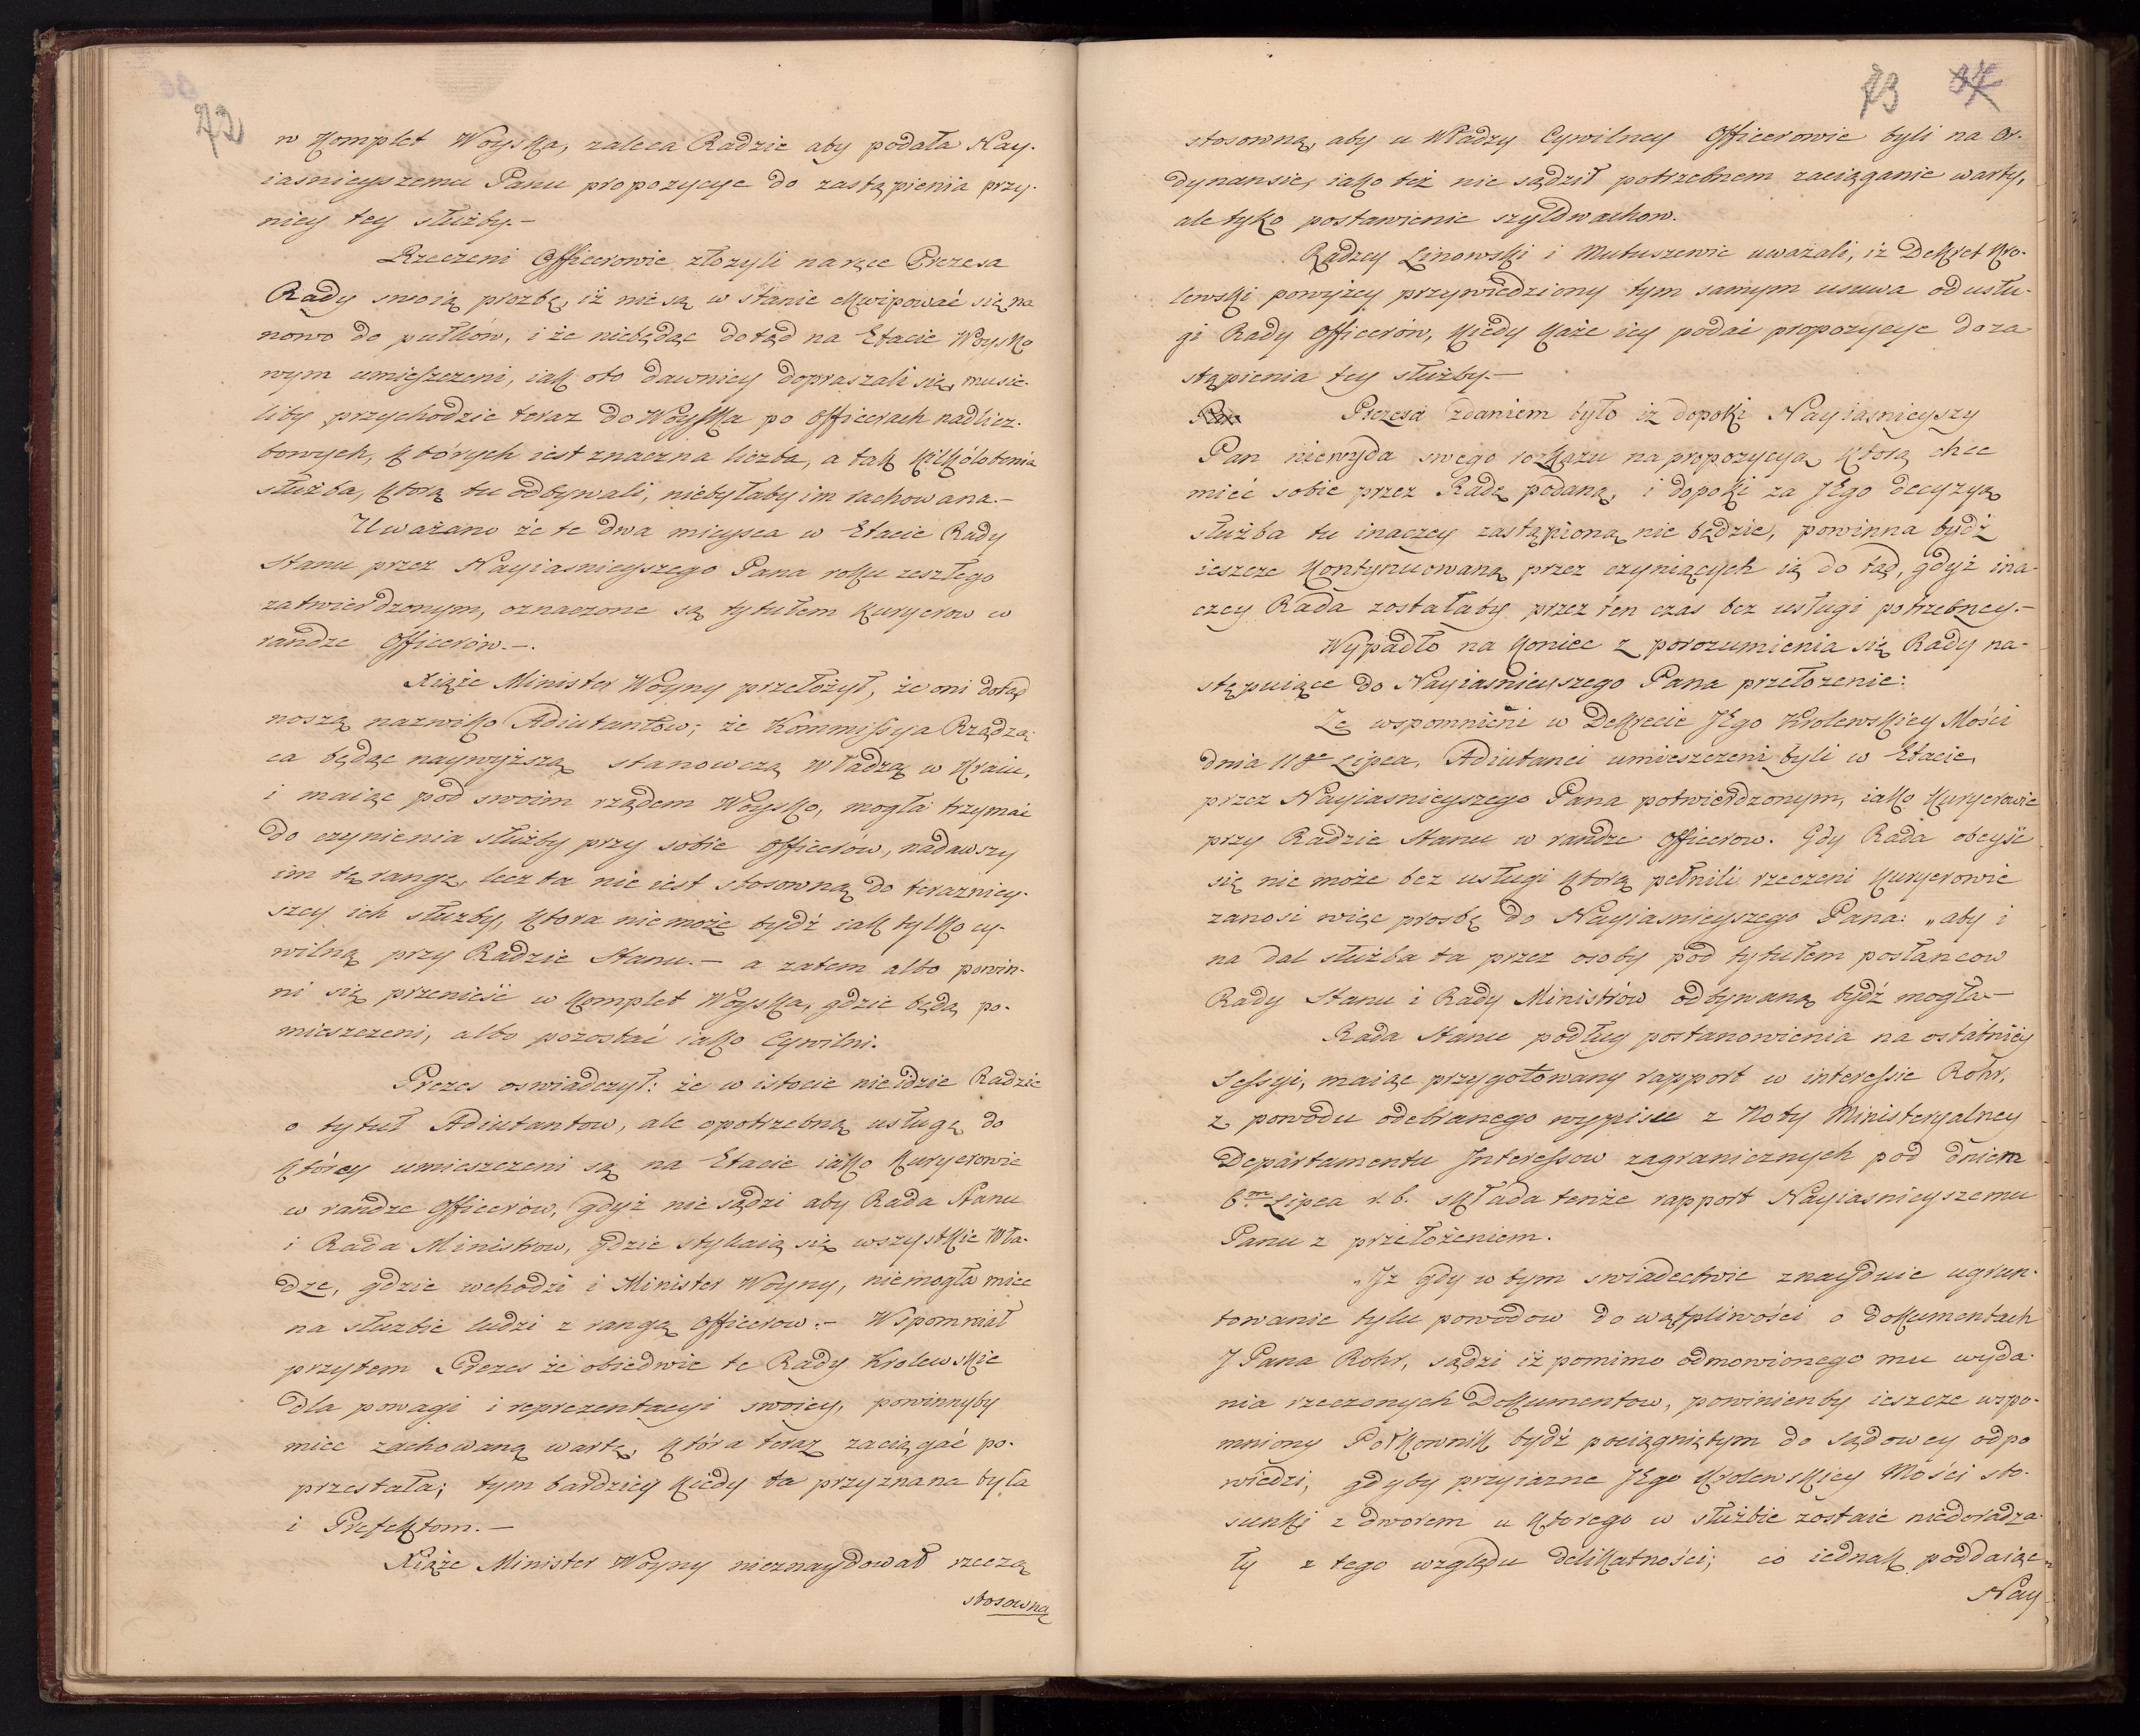 72
w Komplet Woyska, zaleca Radzie aby podała Nay-
iasnieyszemu Panu propozycye do zastąpienia przy-
niey tey służby.-
Rzeczeni Officerowie złożyli na ręce Prezesa
Rady swoią prozbę, iż nie są w stanie ekwipować się na
nowo do pułków, i że niebędąc dotąd na Etacie Woysko
wym umieszczeni, iak oto dawniey dopraszali się, musie-
liby przychodzic teraz do Woyska po Officerach nadlicz-
bowych, których iest znaczna liczba, a tak kilkóletnia
służba, którą tu odbywali, niebyłaby im rachowana.-
Uważano że te dwa mieysca w Etacie Rady
Stanu przez Nayiasnieyszego Pana roku zeszłego
zatwierdzonym, oznaczone są tytułem Kuryerow w
randze Officerów.-.
Xiąże Minister Woyny przełożył, że oni dotąd
noszą nazwisko Adiutantów; że Kommissya Rządzą-
ca będąc naywyższą stanowczą Władzą w Kraiu,
i maiąc pod swoim rządem Woysko, mogła trzymać
do czynienia służby przy sobie Officerów, nadawszy
im tę rangę, lecz ta nie iest stosowną do terazniey-
szey ich służby, ktora nie może bydź iak tylko cy-
wilną przy Radzie Stanu.- a zatem albo powin-
ni się przenieść w Komplet Woyska, gdzie będą po-
mieszczeni, albo pozostać iako Cywilni.
Prezes oswiadczył: że w istocie nie idzie Radzie
o tytuł Adiutantow, ale o potrzebną usługę do
którey umieszczeni są na Etacie iako Kuryerowie
w randze Officerów, gdyż nie sądzi aby Rada Stanu
i Rada Ministrow, gdzie stykaią się wszystkie Wła-
dze, gdzie wchodzi i Minister Woyny, niemogła miec
na służbie ludzi z rangą Officerow.- Wspomniał
przytem Prezes że obiedwie te Rady Krolewskie
dla powagi i reprezentacyi swoiey, powinnyby
miec zachowaną wartę, która teraz zaciągać po-
przestała; tym bardziey kiedy ta przyznana była
i Prefektom.-
Xiąże Minister Woyny nieznaydował rzeczą
stosowną
73 37
stosowną, aby u Władzy Cywilney Officerowie byli na Or-
dynansie, iako też nie sądził potrzebnem zaciąganie warty,
ale tyko postawienie szyldwachow.
Radzcy Linowski i Mutuszewic uważali, iż Dekret Kro-
lewski powyżey przywiedziony tym samym usuwa od usłu-
gi Rady Officerów, kiedy każe iey podać propozycye do za
stąpienia tey służby.-
Prezesa zdaniem było iż dopoki Nayiasnieyszy
Pan niewyda swego rozkazu na propozycyą ktorą chce
mieć sobie przez Radę podaną, i dopoki za JEgo decyzyą
służba tu inaczey zastąpioną nie będzie, powinna bydź
ieszcze kontynuowaną przez czyniących ią do tąd, gdyż ina-
czey Rada zostałaby przez ten czas bez usługi potrzebney.-
Wypadło na koniec z porozumienia się Rady na-
stępuiące do Nayiasnieyszego Pana przełożenie:
Że wspomnieni w Dekrecie JEgo Krolewskiey Mości
dnia 11go Lipca, Adiutanci umieszczeni byli w Etacie,
przez Nayiasnieyszego Pana potwierdzonym, iako Kuryerowie
przy Radzie Stanu w randze Officerow. Gdy Rada obeyśc
się nie może bez usługi ktorą pełnili rzeczeni Kuryerowie
zanosi więc prosbę do Nayiasnieyszego Pana: „aby i
na dal służba ta przez osoby pod tytułem posłancow
Rady Stanu i Rady Ministrów odbywaną bydź mogła.-
Rada Stanu podług postanowienia na ostatniey
Sessyi, maiąc przygotowany rapport w interessie Rohr,
z powodu odebranego wypisu z Noty Ministeryalney
Departamentu Interessow zagranicznych pod dniem
6m Lipca r. b. składa tenże rapport Nayiasnieyszemu
Panu z przełożeniem.
„Iż gdy w tym swiadectwie znayduie ugrun-
towanie tylu powodow do wątpliwości o dokumentach
J Pana Rohr, sądzi iż pomimo odmowionego mu wyda-
nia rzeczonych Dokumentow, powinienby ieszcze wspo-
mniony Połkownik bydź pociągniętym do sądowey odpo
wiedzi, gdyby przyiazne JEgo Krolewskiey Mości sto-
sunki z dworem u ktorego w służbie zostaie niedoradza-
ły z tego względu delikatności; co iednak poddaiąc
Nay